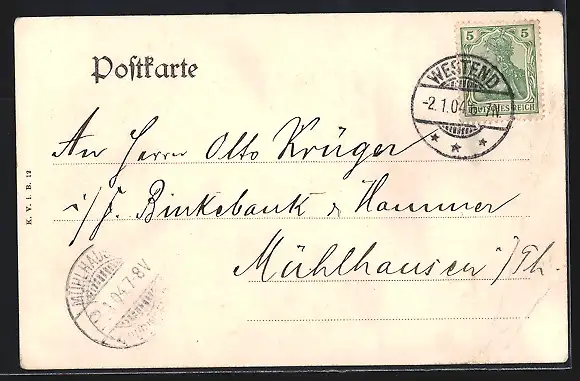 Postkarte
5 5
DEUTSCHES REICH
WESTEND
-2.1.04
An Herrn Otto Krüger
i/F. Binkebank & Hammer
Mühlhausen i/Th.
K. V. i. B. 12
MÜHLHAUSEN
1.04.7-8V